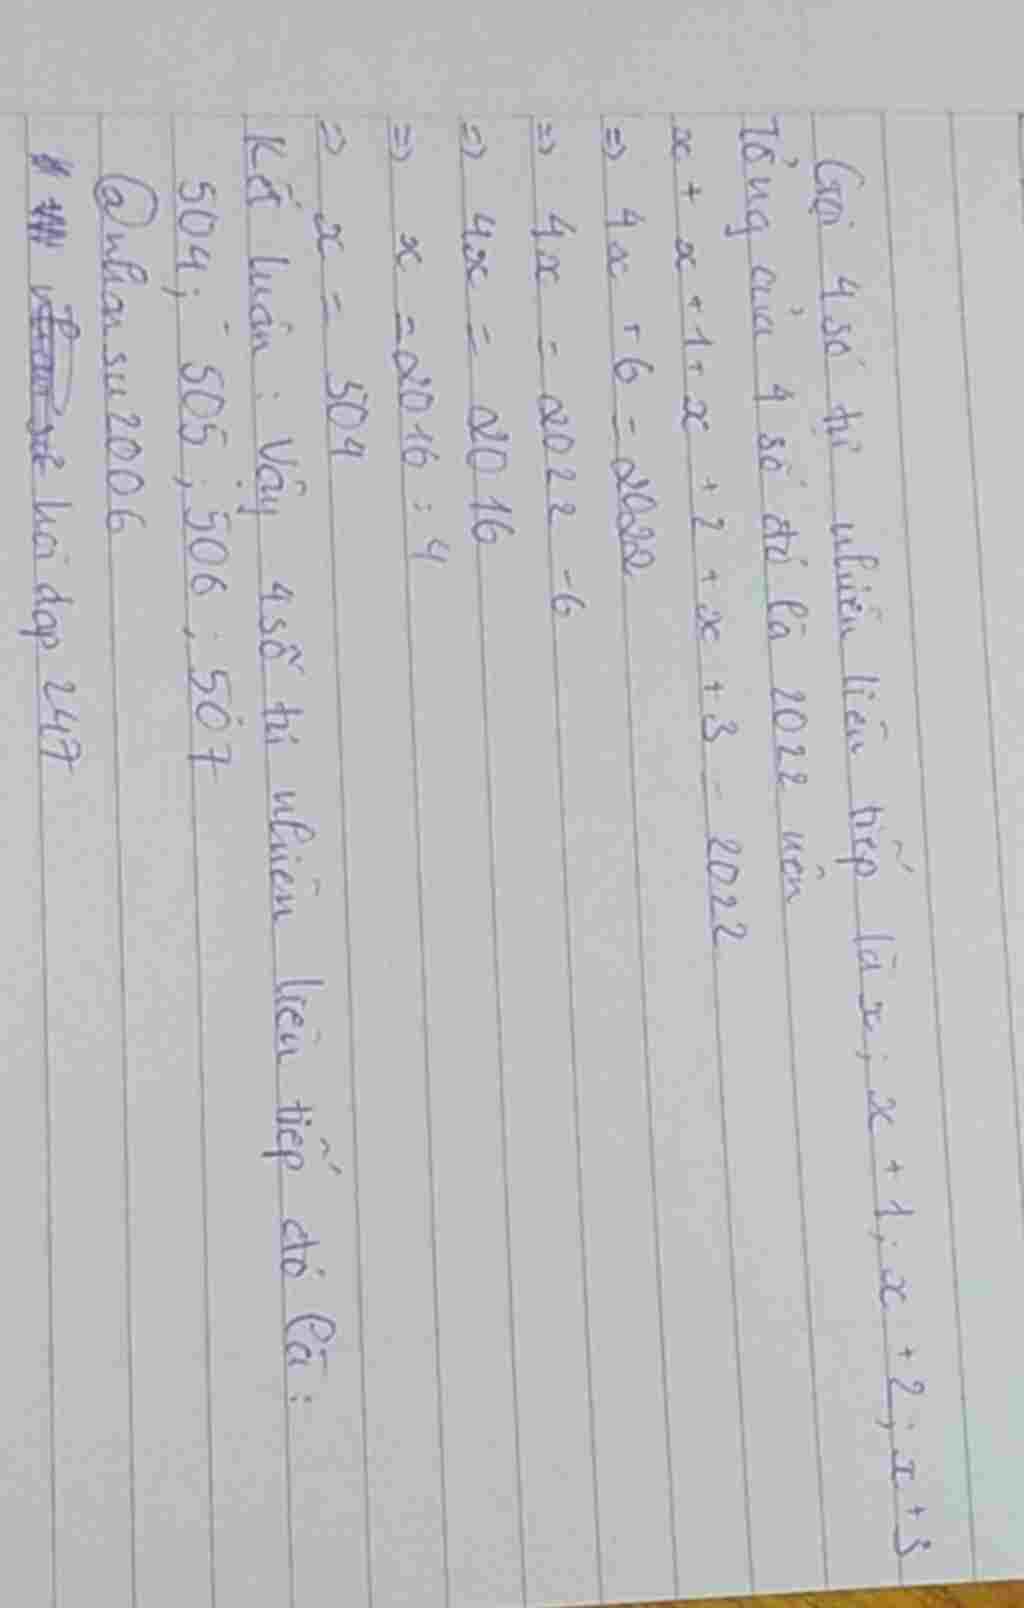 Gọi 4 số tự nhiên liên tiếp là x; x + 1; x + 2; x + 3
Tổng của 4 số đó là 2022 nên
x + x + 1 + x + 2 + x + 3 = 2022
=> 4x + 6 = 2022
=> 4x = 2022 - 6
=> 4x = 2016
=> x = 2016 : 4
=> x = 504
Kết luận : Vậy 4 số tự nhiên liên tiếp đó là :
504; 505; 506; 507
@nhansu2006
hoidap247